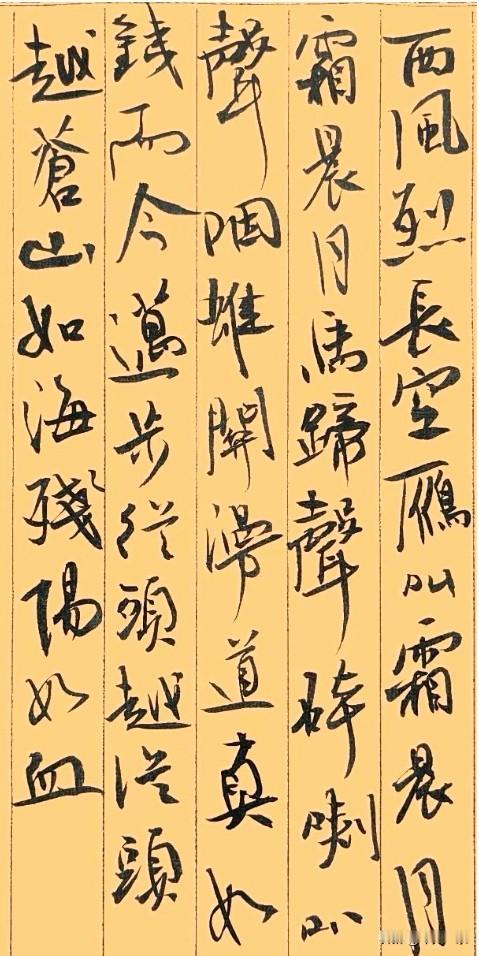 西風烈長空雁叫霜晨月
霜晨月馬蹄聲碎喇叭
聲咽雄關漫道真如
鐵而今邁步從頭越從頭
越蒼山如海殘陽如血